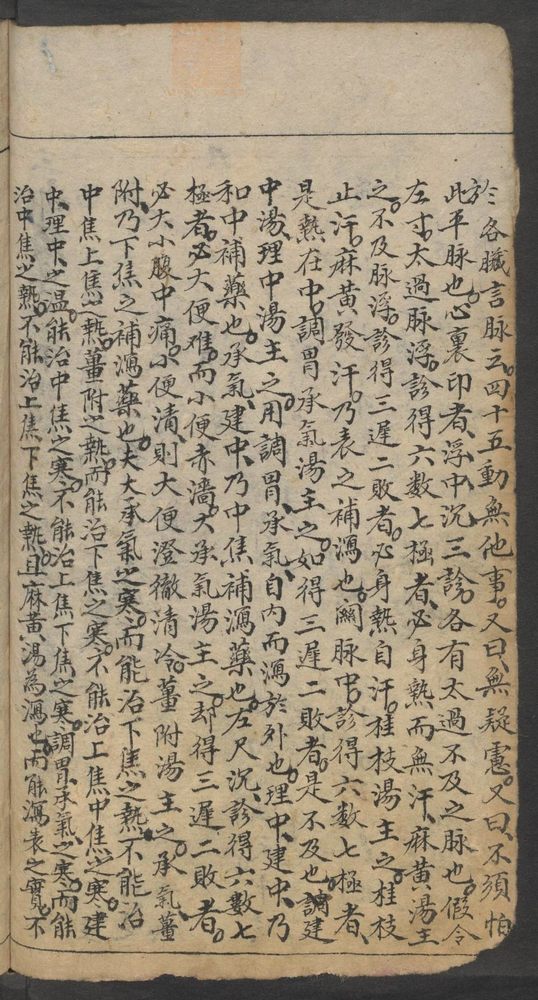 於各臟言脉云四十五動無他事又曰無疑慮又曰不須怕
此平脉也心裏印者浮中沉三診各有太過不及之脉也假令
左寸太過脉浮診得六数七極者必身熱而無汗麻黄湯主
之不及脉浮診得三遲二敗者必身熱自汗桂枝湯主之桂枝
止汗麻黄發汗乃表之補瀉也關脉中診得六数七極者
是熱在中調胃承氣湯主之如得三遲二敗者是不及也調建
中湯理中湯主之用調胃承氣自内而瀉於外也理中建中乃
和中補藥也承氣建中乃中焦補瀉藥也左尺沉診得六数七
極者必大便难而小便赤濇大承氣湯主之却得三遲二敗者
必大小腹中痛小便清則大便澄徹清冷薑附湯主之承氣薑
附乃下焦之補瀉藥也夫大承氣之寒而能治下焦之熱不能治
中焦上焦之熱薑附之熱而能治下焦之寒不能治上焦中焦之寒建
中理中之温能治中焦之寒不能治上焦下焦之寒調胃承氣之寒而能
治中焦之熱不能治上焦下焦之熱且麻黄湯為瀉也而能瀉表之實不